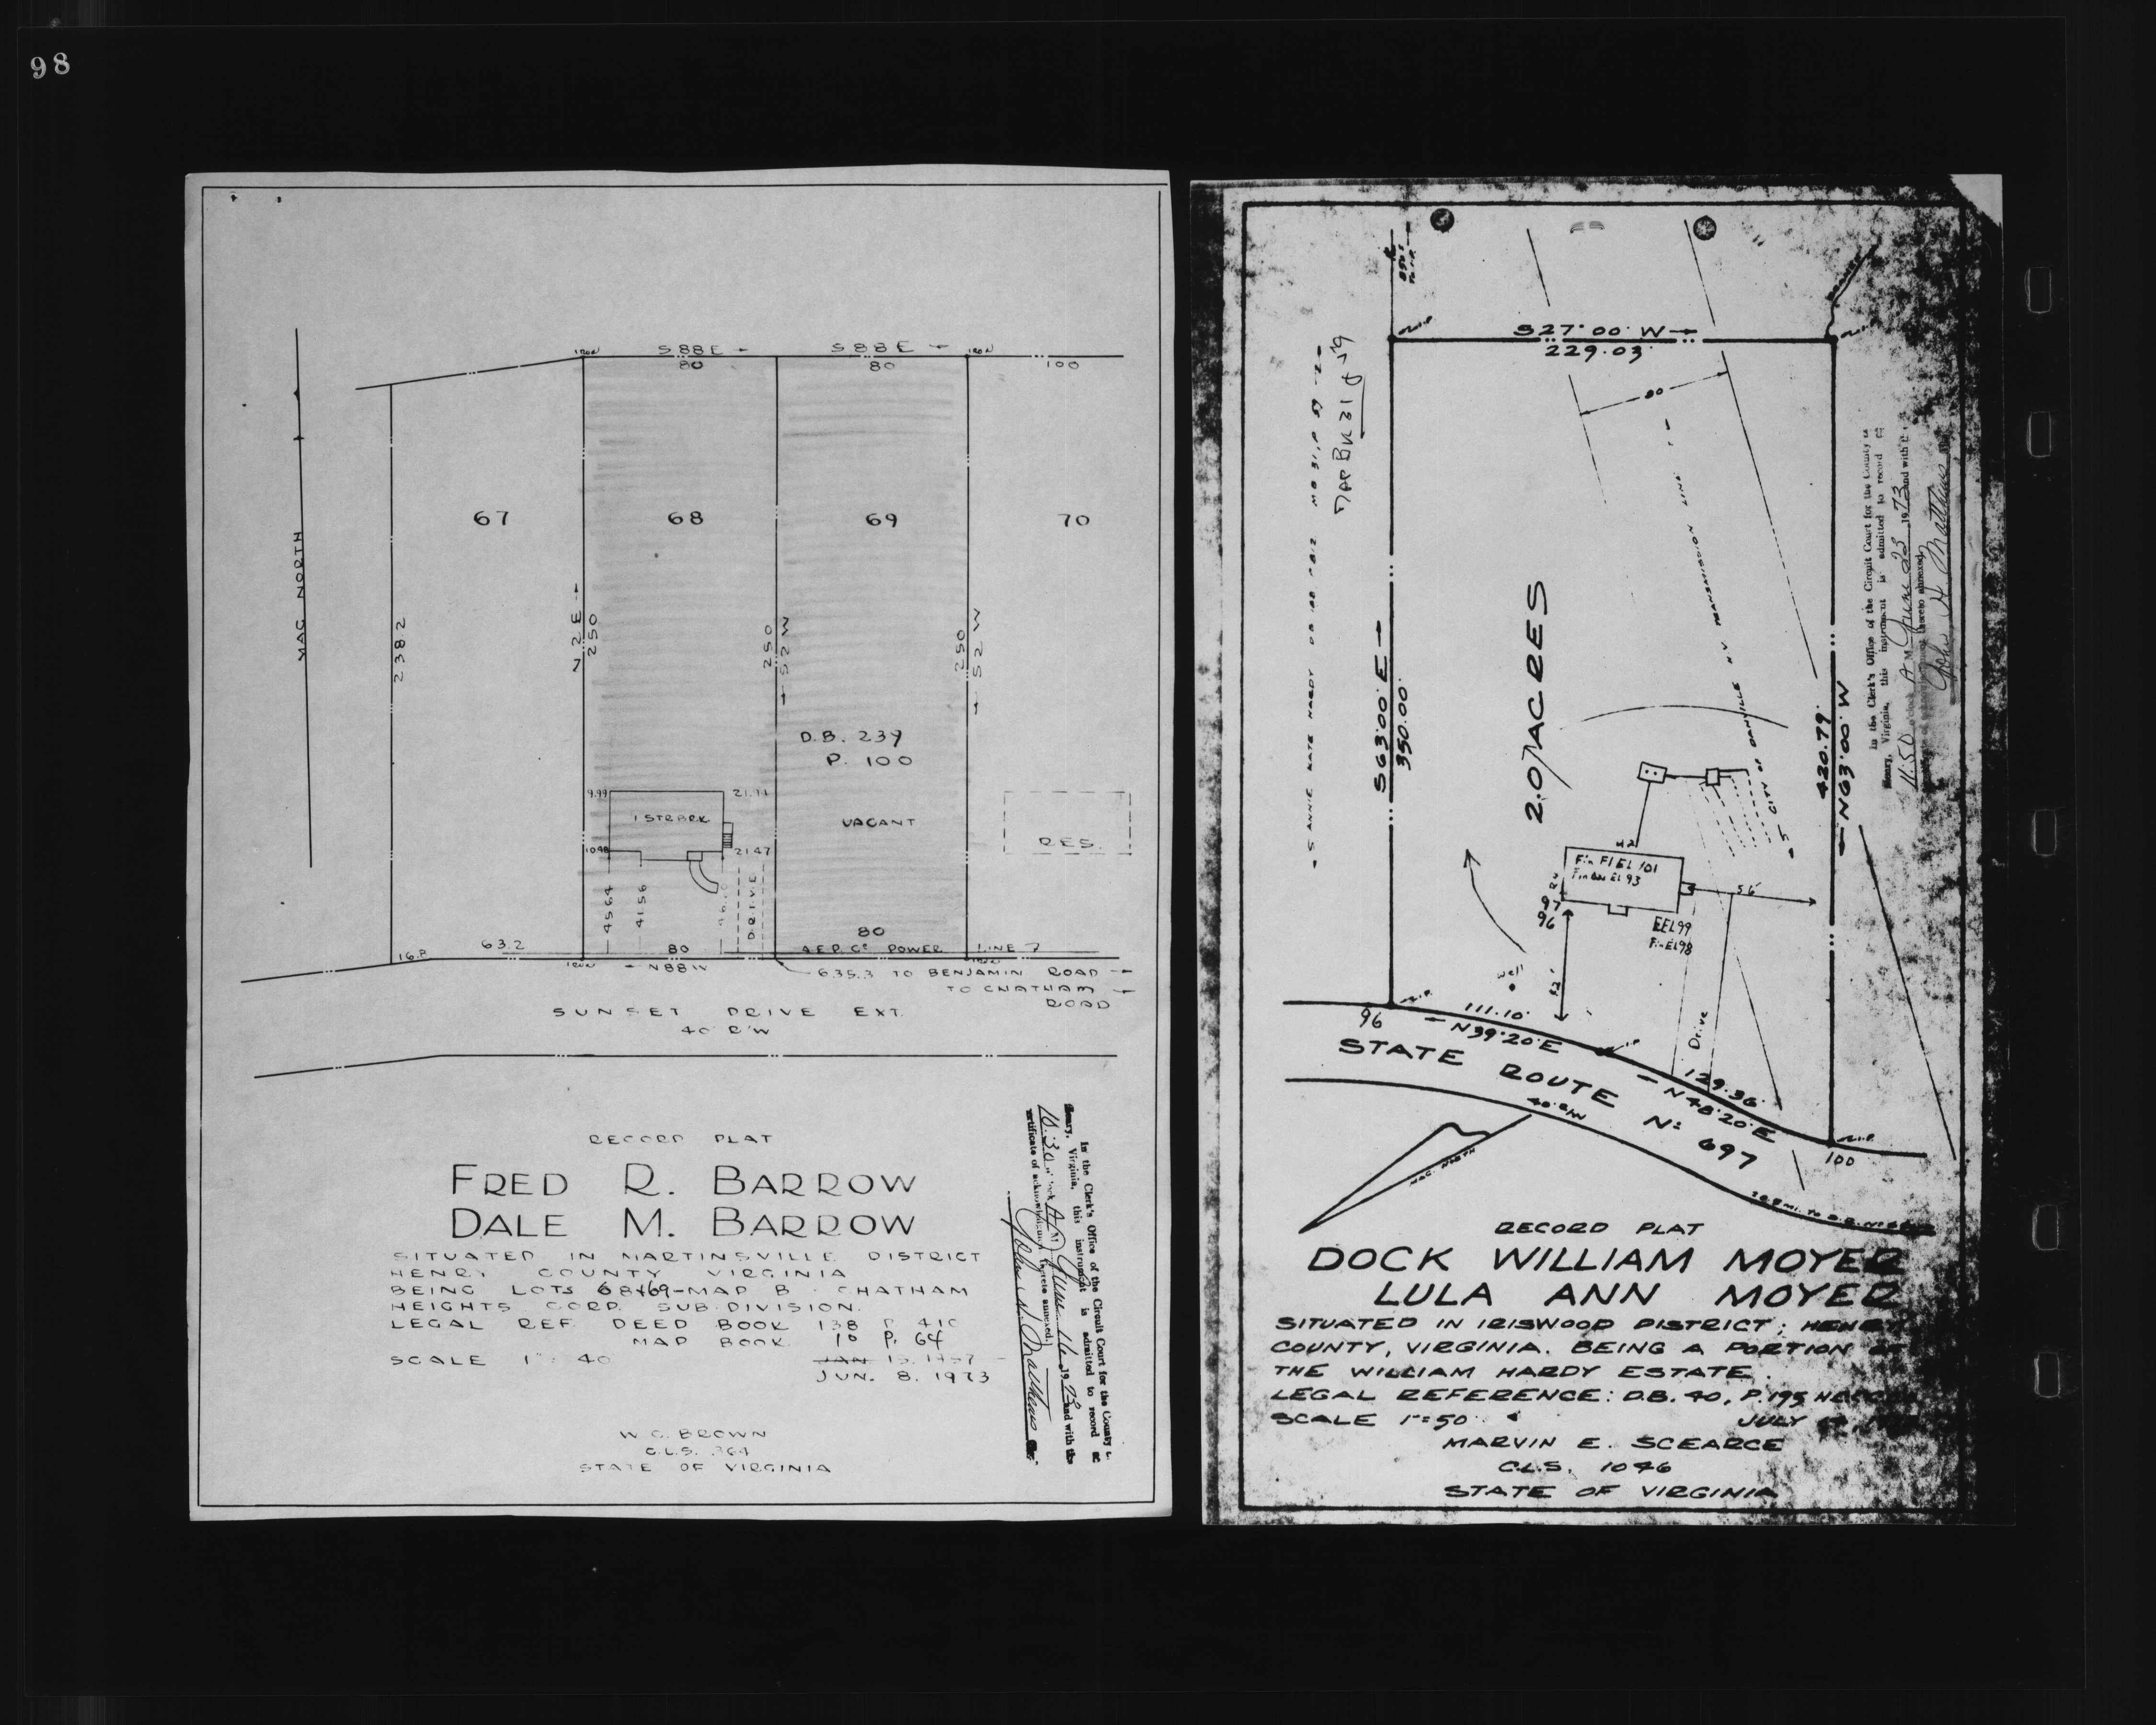 98
S 88 E
S 88 E
IRON
IRON
80
80
100
67
68
69
70
MAG NORTH
238.2
N 2 E
250
250
S 2 W
250
S 2 W
D.B. 239
P. 100
9.99
21.94
1 ST BRK
VACANT
RES.
10.98
21.47
45.64
41.56
DRIVE
80
16.8
63.2
80
A.E.P. Co POWER LINE
IRON
N 88 W
IRON
635.3 TO BENJAMIN ROAD
TO CHATHAM
ROAD
SUNSET DRIVE EXT.
40' R/W
RECORD PLAT
FRED R. BARROW
DALE M. BARROW
SITUATED IN MARTINSVILLE DISTRICT
HENRY COUNTY VIRGINIA
BEING LOTS 68+69-MAP B CHATHAM
HEIGHTS CORP. SUB-DIVISION.
LEGAL REF. DEED BOOK 138 P 410
MAP BOOK 10 P. 64
SCALE 1": 40
JAN 15 1957
JUN. 8. 1973
W. C. BROWN
C.L.S. 364
STATE OF VIRGINIA
In the Clerk's Office of the Circuit Court for the County
Henry, Virginia, this instrument is admitted to record at
10:30 A M June 16 1973 and with the
certificate of acknowledgment thereto annexed.
John H. Matthews
S 27° 00' W
229.03'
80
S ANNIE KATE HARDY
MB 31, P 59
Map Bk 31 p 59
S 63° 00' E
350.00'
2.07 ACRES
CITY OF DANVILLE H.V. TRANSMISSION LINE
420.79'
N 63° 00' W
In the Clerk's Office of the Circuit Court for the County
Henry, Virginia, this instrument is admitted to record
11:50 A M June 23 1973 and with
thereto annexed.
John H Matthews
42
Fin Fl EL 101
Fin Bas EL 93
97
96
56'
EEL 99
Fin EL 98
well
52'
Drive
96
111.10'
N 39° 20' E
129.36'
N 48° 20' E
100
STATE ROUTE No 697
40' R/W
MAG. NORTH
RECORD PLAT
DOCK WILLIAM MOYER
LULA ANN MOYER
SITUATED IN IRISWOOD DISTRICT; HENRY
COUNTY, VIRGINIA. BEING A PORTION OF
THE WILLIAM HARDY ESTATE.
LEGAL REFERENCE: D.B. 40, P. 195
SCALE 1"=50'
JULY
MARVIN E. SCEARCE
C.L.S. 1046
STATE OF VIRGINIA